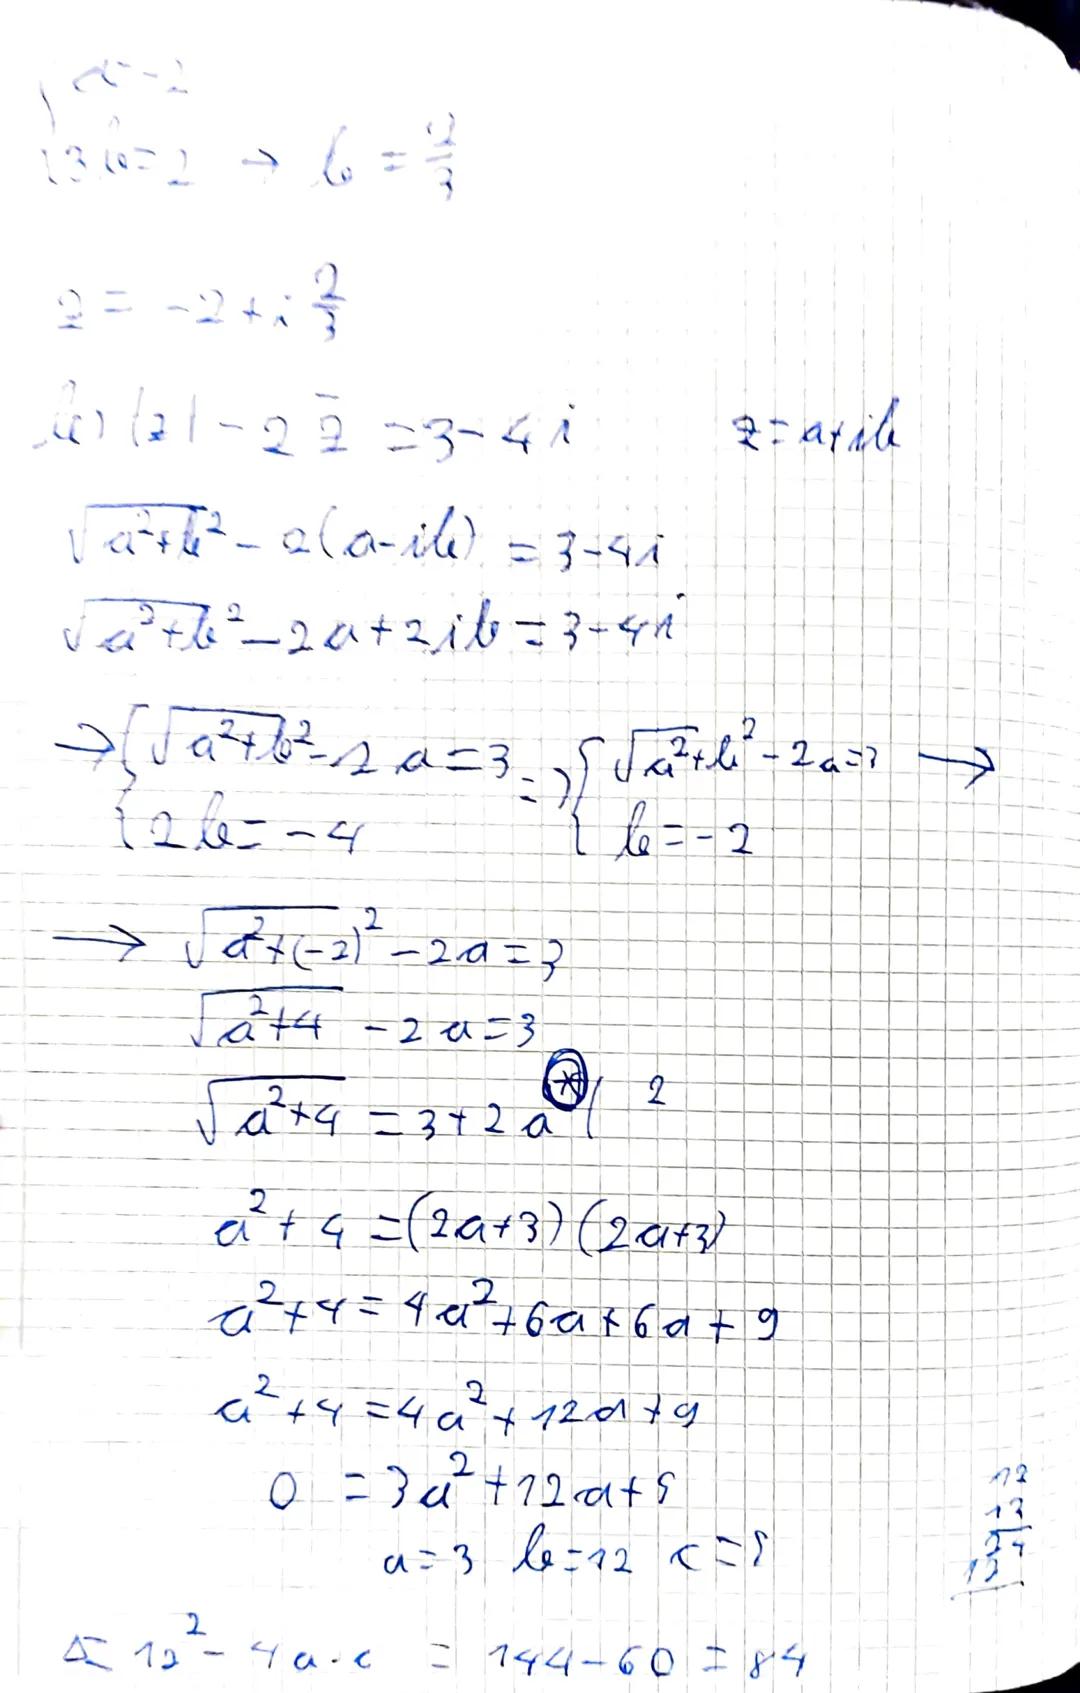 3b=2 → b = 2/3
z = -2+i 2/3
b) |z| - 2z̄ = 3-4i z=a+ib
√a²+b² - 2(a-ib) = 3-4i
√a²+b² - 2a+2ib = 3-4i
→ { √a²+b² - 2a = 3 => { √a²+b² - 2a=3 →
{ 2b = -4 { b = -2
→ √a²+(-2)² - 2a = 3
√a²+4 - 2a = 3
√a²+4 = 3+2a * | 2
a²+4 = (2a+3)(2a+3)
a²+4 = 4a²+6a+6a+9
a²+4 = 4a²+12a+9
0 = 3a²+12a+5
a=3 b=12 c=5
12
24
Δ= 12² - 4a·c = 144-60 = 84